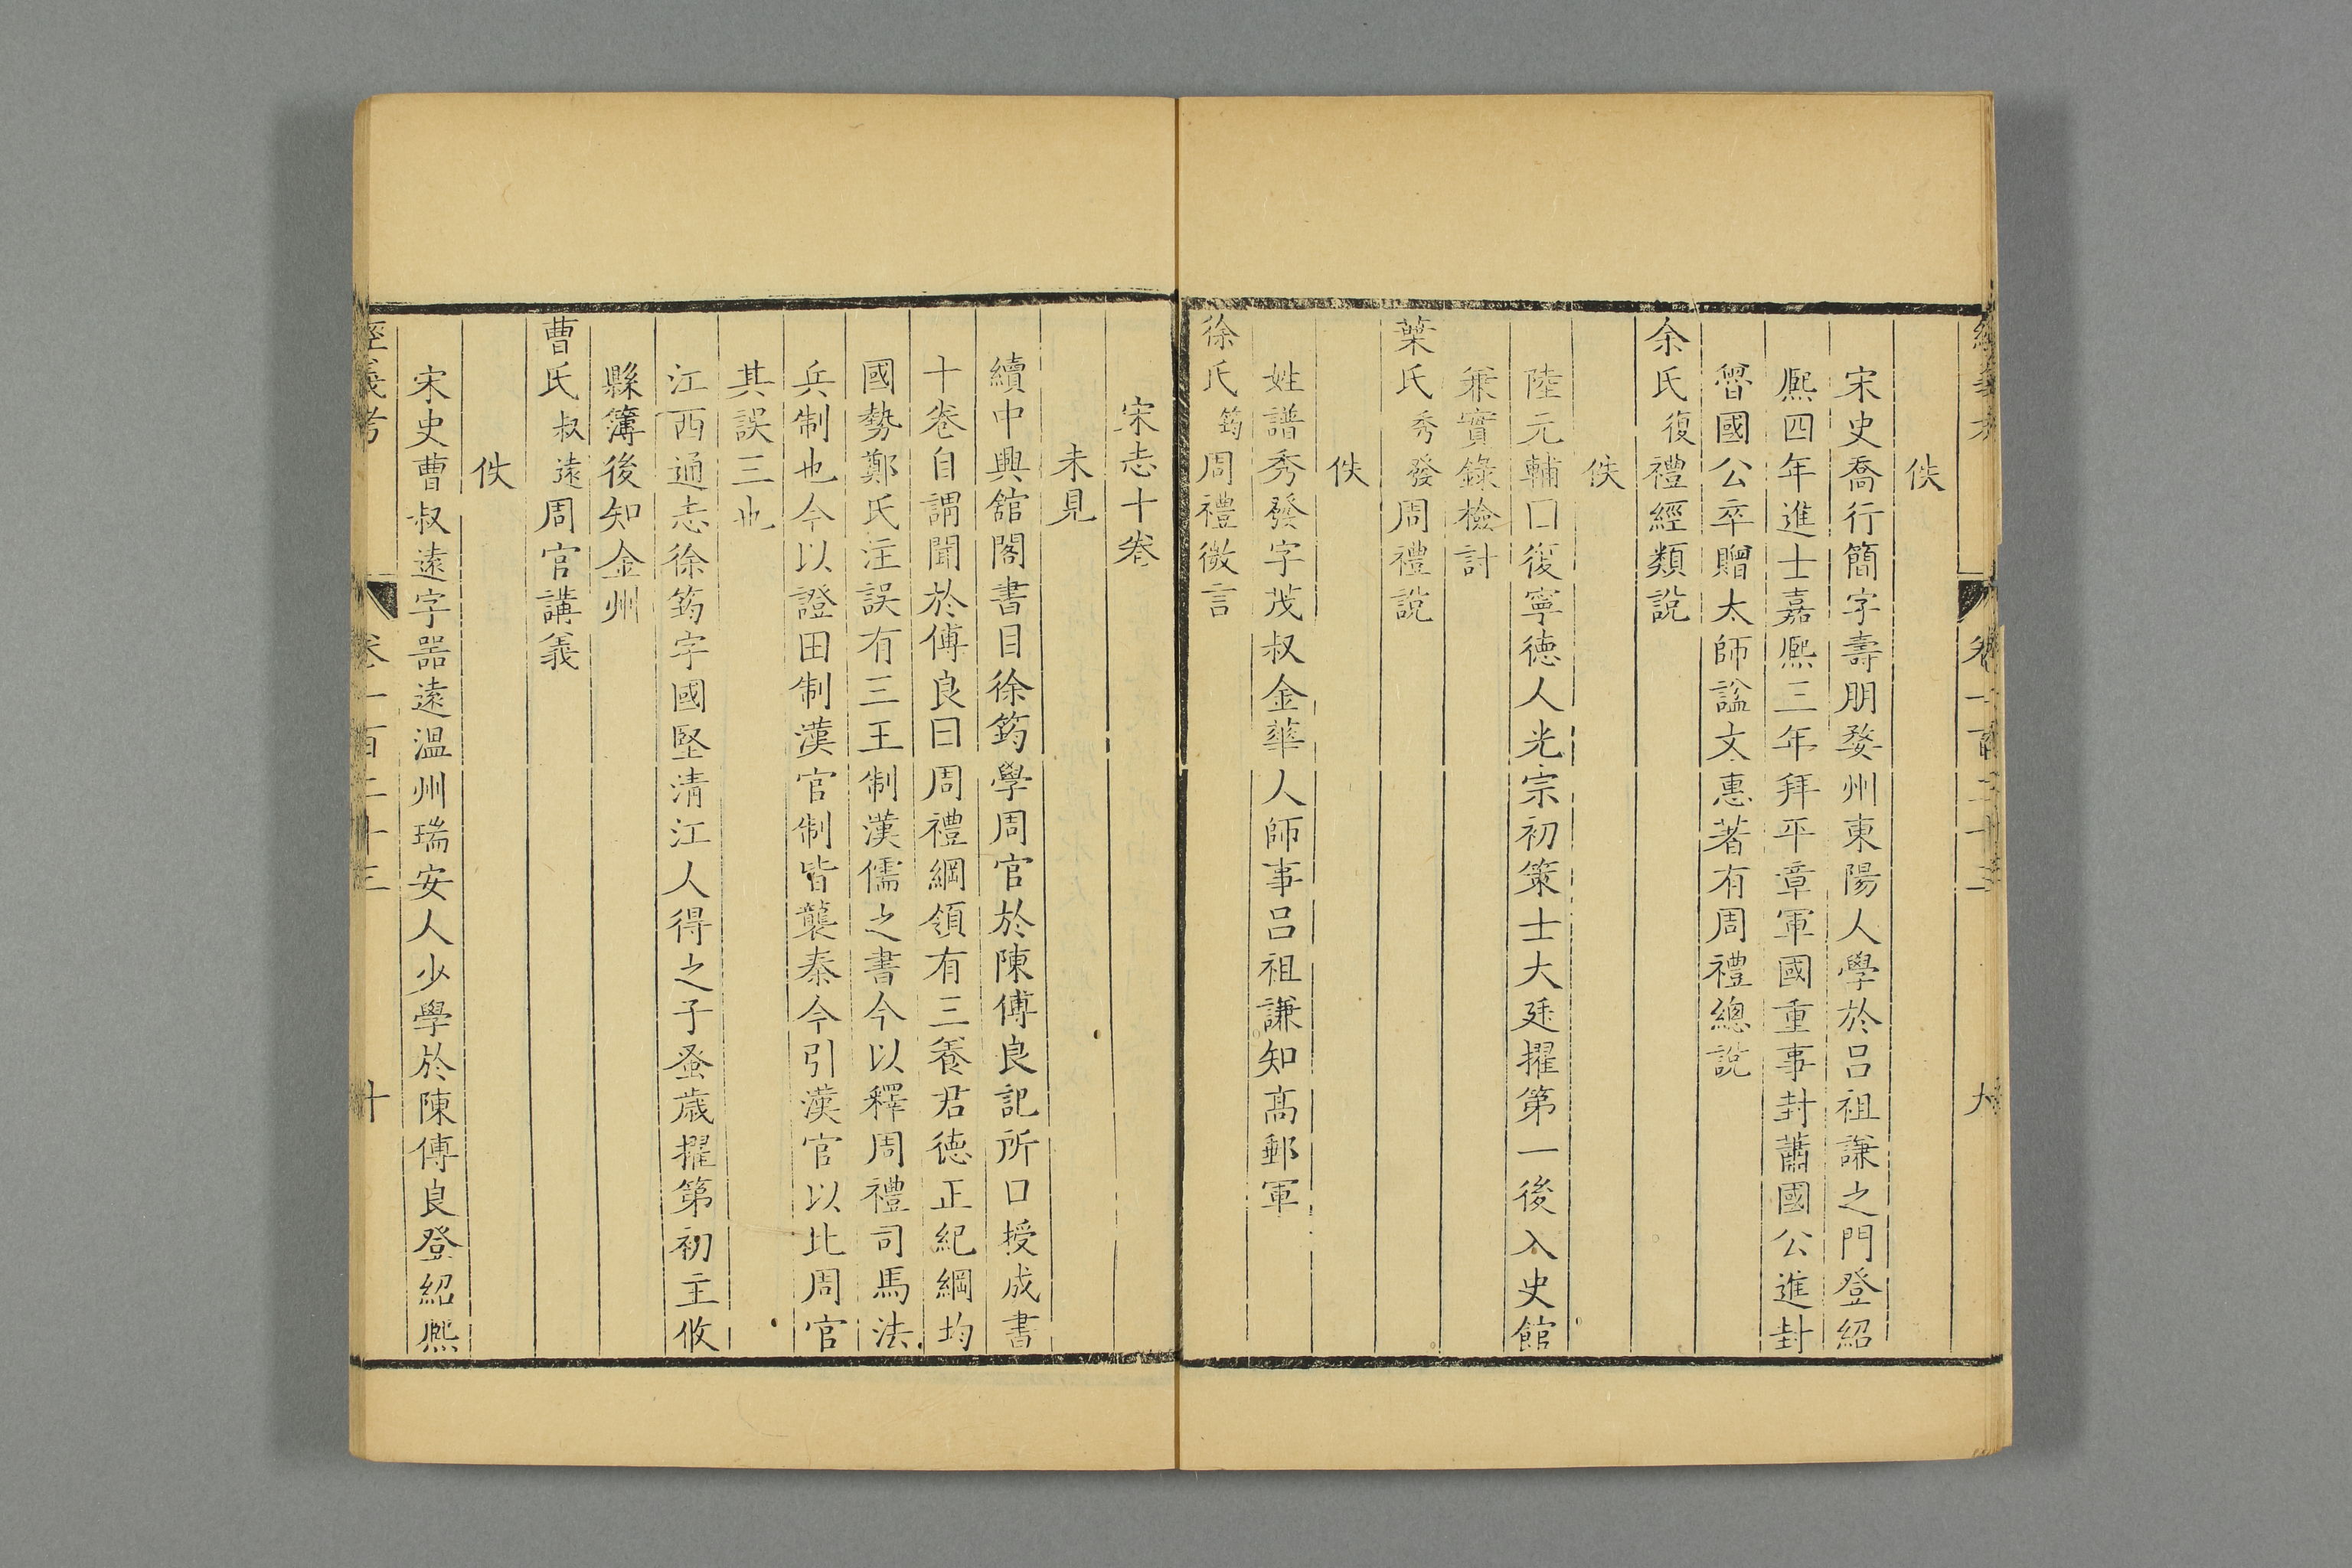 佚
宋史喬行簡字壽朋婺州東陽人學於呂祖謙之門登紹
熈四年進士嘉熈三年拜平章軍國重事封蕭國公進封
魯國公卒贈太師諡文惠著有周禮總說
余氏復禮經類說
佚
陸元輔曰復寧德人光宗初策士大廷擢第一後入史館
兼實錄檢討
葉氏秀發周禮說
佚
姓譜秀發字茂叔金華人師事呂祖謙知高郵軍
徐氏筠周禮微言
宋志十卷
未見
續中興館閣書目徐筠學周官於陳傅良記所口授成書
十卷自謂聞於傅良曰周禮綱領有三養君德正紀綱均
國勢鄭氏注誤有三王制漢儒之書今以釋周禮司馬法
兵制也今以證田制漢官制皆襲秦今引漢官以比周官
其誤三也
江西通志徐筠字國堅清江人得之子蚤歲擢第初主攸
縣簿後知金州
曹氏叔遠周官講義
佚
宋史曹叔遠字器遠溫州瑞安人少學於陳傅良登紹熈
經義考 卷一百二十三 十